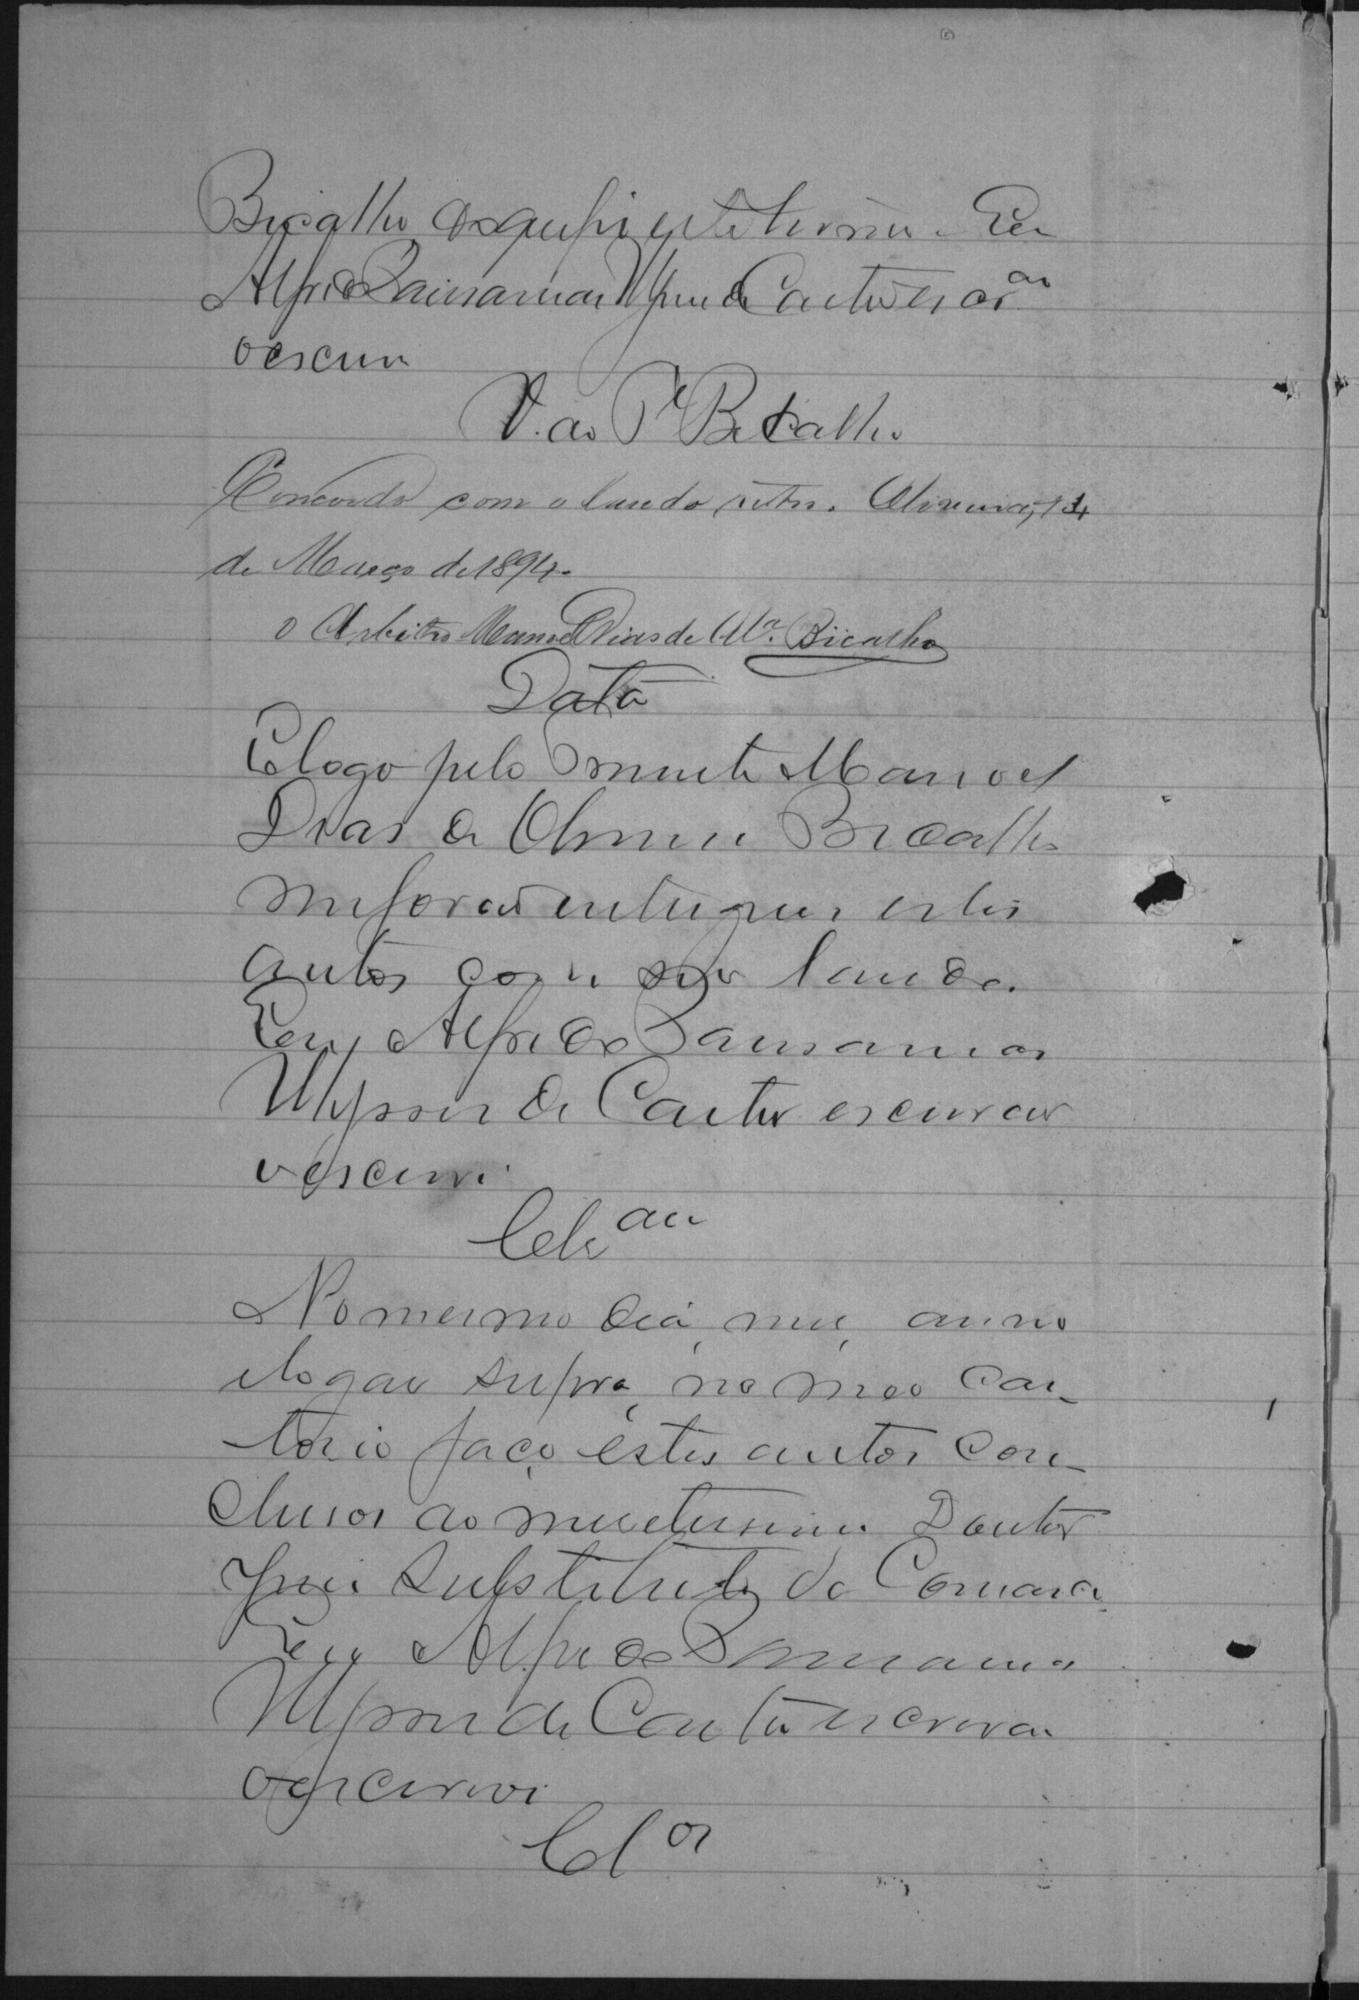 Bicalho do que fiz este termo. Eu
Alfredo Pausanias Ulysses de Castro escr.am
o escrevi
V. ao P.e Bicalho
Concordo com o laudo retro. Oliveira, 14
de Março de 1894.
O Arbitro Manoel Dias de Olª. Bicalho
Data
E logo pelo Manoel
Dias de Oliveira Bicalho
me foram entregues estes
autos com seu laudo.
Eu, Alfredo Pausanias
Ulysses de Castro escrivam
o escrevi.
Cls.am
No mesmo dia, mez, anno
e logar supra, no meo car-
torio faço estes autos con-
clusos ao meretissimo Doutor
Juiz Substituto da Comarca.
Eu Alfredo Pausanias
Ulysses de Castro escrivam
o escrevi
Cl.os